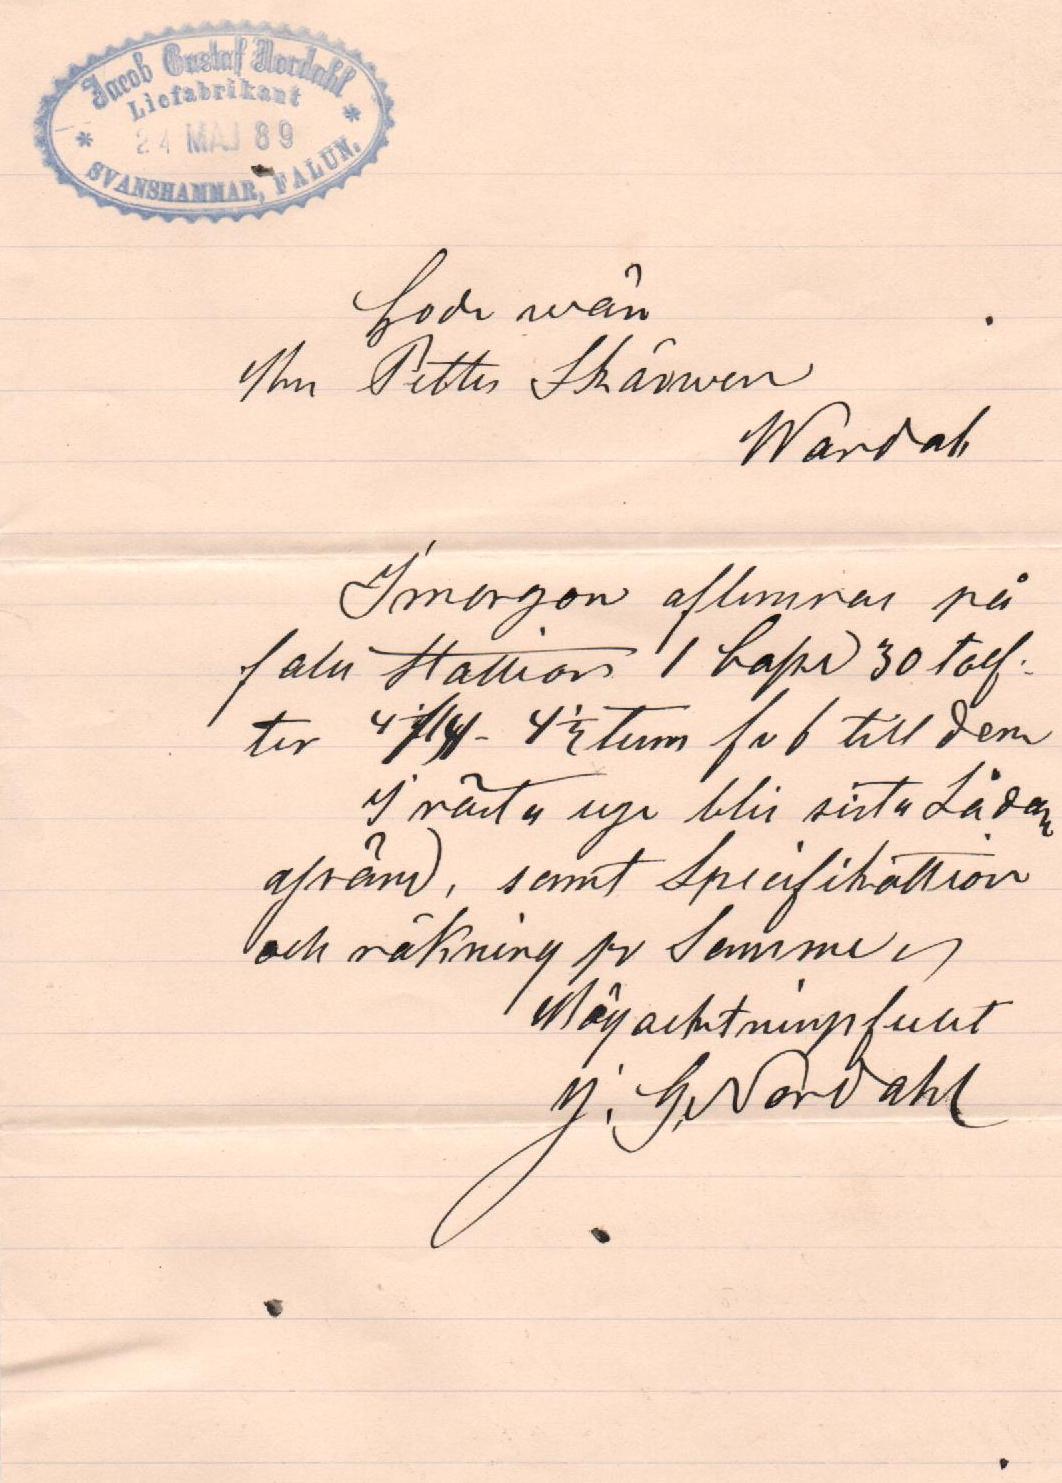 Jacob Gustaf Nordahl
Liefabrikant
24 MAJ 89
SVANSHAMMAR, FALUN.
Gode wän
Hrr Petter Skärwen
Wardal
I morgon aflemnas på
falu Stattion 1 30 tolf-
ter 4 1/2 tum till dem
I nästa blir sista Lådan
afsänd, samt Specifikattion
och räkning pr Samma
Högachtningsfullt
J. G. Nordahl